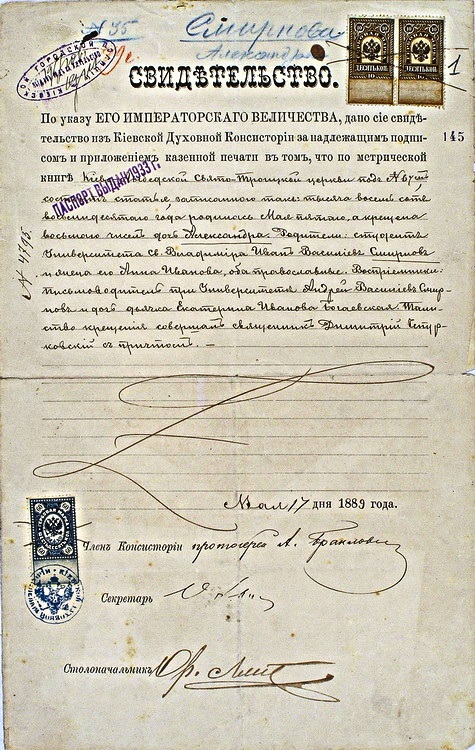 № 95
Смирнова
Александра
СВИДѢТЕЛЬСТВО.
1
По указу ЕГО ИМПЕРАТОРСКАГО ВЕЛИЧЕСТВА, дано сіе свидѣ-
тельство изъ Кіевской Духовной Консисторіи за надлежащимъ подпи-
145
сомъ и приложеніемъ казенной печати въ томъ, что по метрической
книгѣ Кіево- Свято-Троицкой церкви подъ №
ПАСПОРТ ВЫДАН 1933 г.
состоитъ статья записанною такъ: тысяча восемь сотъ
восемидесятаго года родилась Мая пятаго, а крещена
восьмого чиселъ дочь Александра. Родители: студентъ
Университета Св. Владиміра Иванъ Василіевъ Смирновъ
и жена его Анна Иванова, оба православные. Воспріемники:
письмоводитель при Университетѣ Андрей Василіевъ Смир-
новъ и дочь дьячка Екатерина Иванова Богаевская. Таин-
ство крещенія совершалъ священникъ Димитрій
ковскій съ причтомъ. —
Мая 17 дня 1889 года.
Членъ Консисторіи протоіерей А.
Секретарь
Столоначальникъ